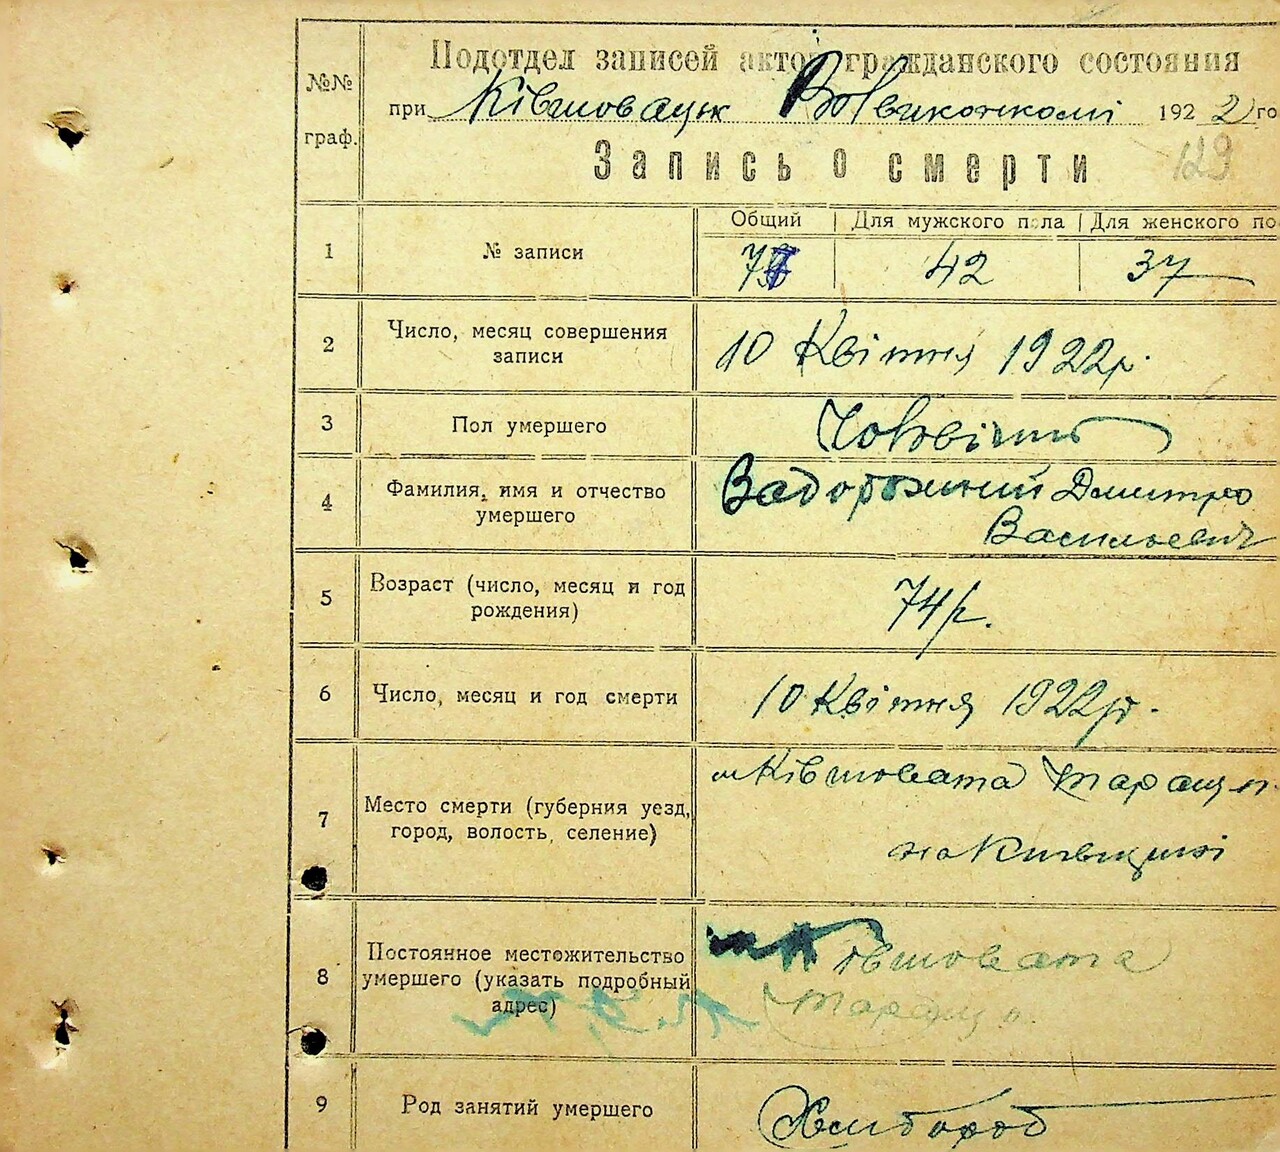 Подотдел записей актов гражданского состояния
№№ граф.
при Ківшовацк Волвиконкомі 1922 го
Запись о смерти
129
Общий | Для мужского пола | Для женского по
1 № записи 42 37
2 Число, месяц совершения записи 10 Квітня 1922р.
3 Пол умершего Чоловіч
4 Фамилия, имя и отчество умершего Задорожний Дмитро
Васильевич
5 Возраст (число, месяц и год рождения) 74 р.
6 Число, месяц и год смерти 10 Квітня 1922р.
7 Место смерти (губерния уезд, город, волость, селение) м Ківшовата Таращ п.
на Київщині
8 Постоянное местожительство умершего (указать подробный адрес) м Ківшовата
Таращ п.
9 Род занятий умершего Хлібороб